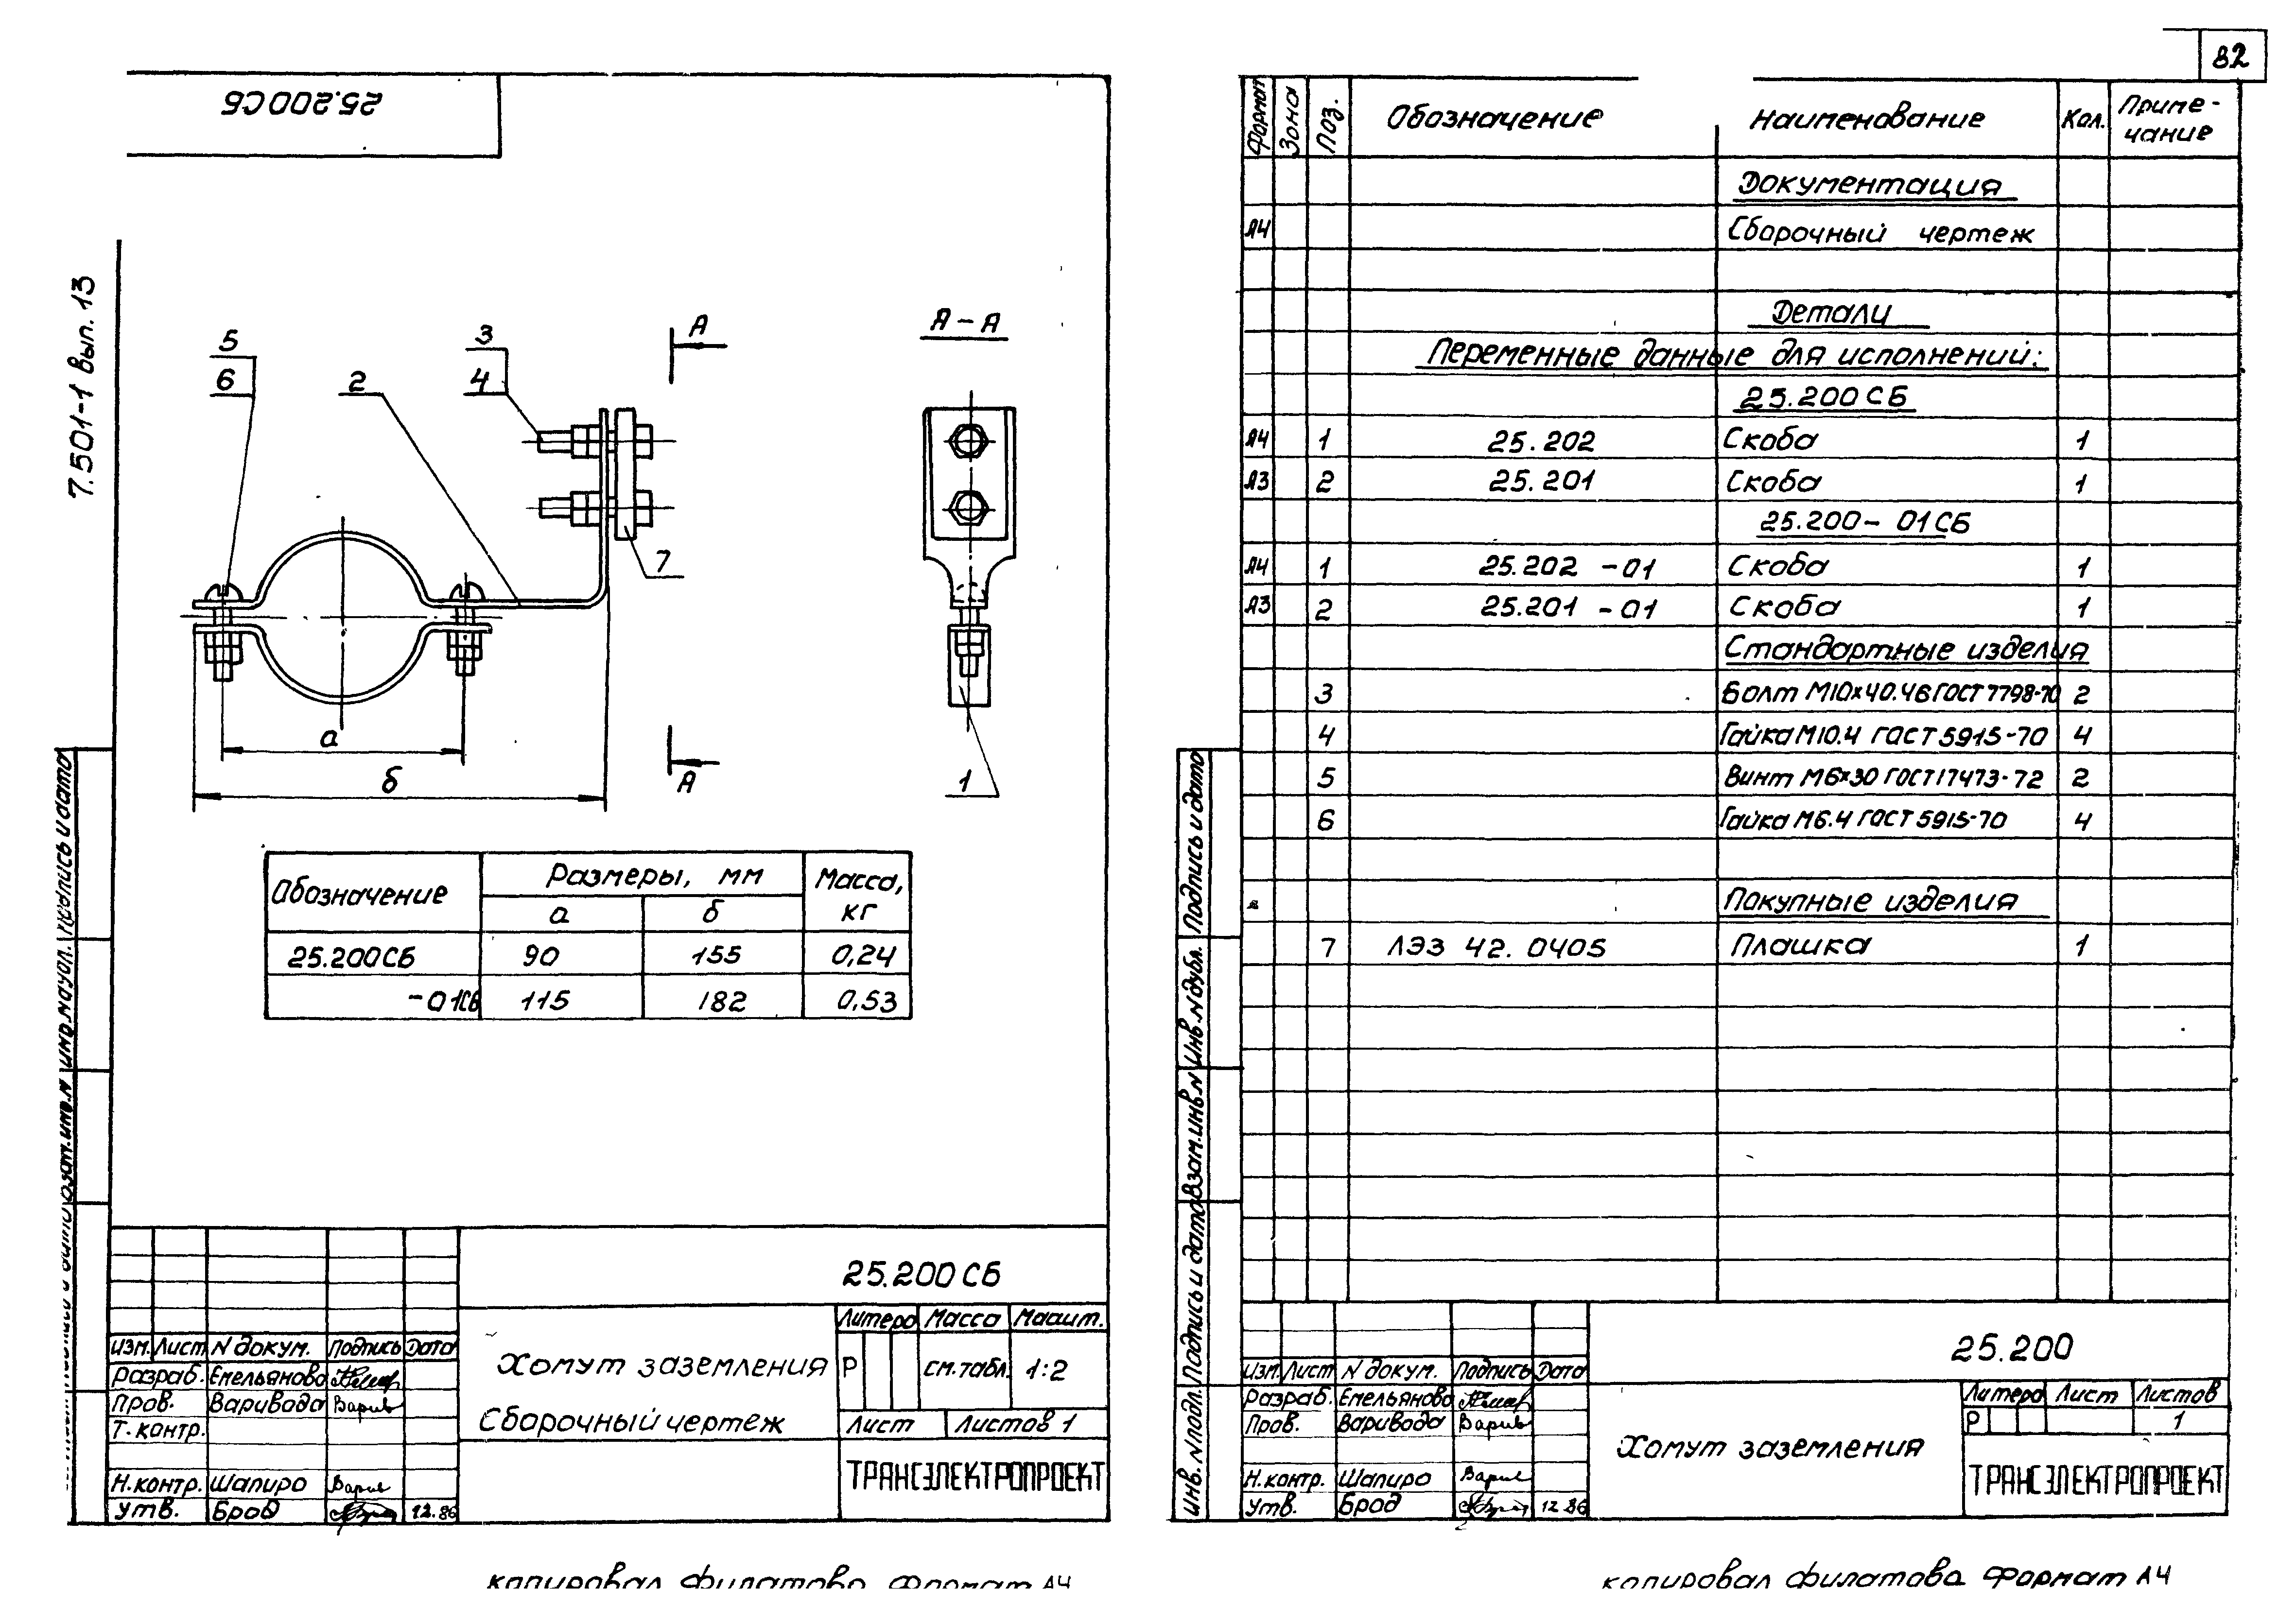 82
25.200СБ
7.501-1 вып. 13
5
6
2
3
4
А
А-А
7
а
б
А
1
Обозначение Размеры, мм Масса, кг
а б
25.200СБ 90 155 0,24
-01СБ 115 182 0,53
Подпись и дата
25.200СБ
Литера Масса Масшт.
Хомут заземления
Р см.табл. 1:2
Сборочный чертеж
Лист Листов 1
ТРАНСЭЛЕКТРОПРОЕКТ
Изм. Лист N докум. Подпись Дата
Разраб. Емельянова
Пров. Варивода
Т. контр.
Н.контр. Шапиро
Утв. Брод 12.86
Копировал Филатова Формат А4
Формат Зона Поз. Обозначение Наименование Кол. Примечание
Документация
А4 Сборочный чертеж
Детали
Переменные данные для исполнений:
25.200СБ
А4 1 25.202 Скоба 1
А3 2 25.201 Скоба 1
25.200-01СБ
А4 1 25.202-01 Скоба 1
А3 2 25.201-01 Скоба 1
Стандартные изделия
3 Болт М10х40.46 ГОСТ 7798-70 2
4 Гайка М10.4 ГОСТ 5915-70 4
5 Винт М6х30 ГОСТ 17473-72 2
6 Гайка М6.4 ГОСТ 5915-70 4
Покупные изделия
7 ЛЭЗ 42.0405 Плашка 1
Инв. N подл. Подпись и дата Взам. инв. N Инв. N дубл. Подпись и дата
25.200
Изм. Лист N докум. Подпись Дата
Разраб. Емельянова
Пров. Варивода
Н.контр. Шапиро
Утв. Брод 12.86
Хомут заземления
Литера Лист Листов
Р 1
ТРАНСЭЛЕКТРОПРОЕКТ
Копировал Филатова Формат А4